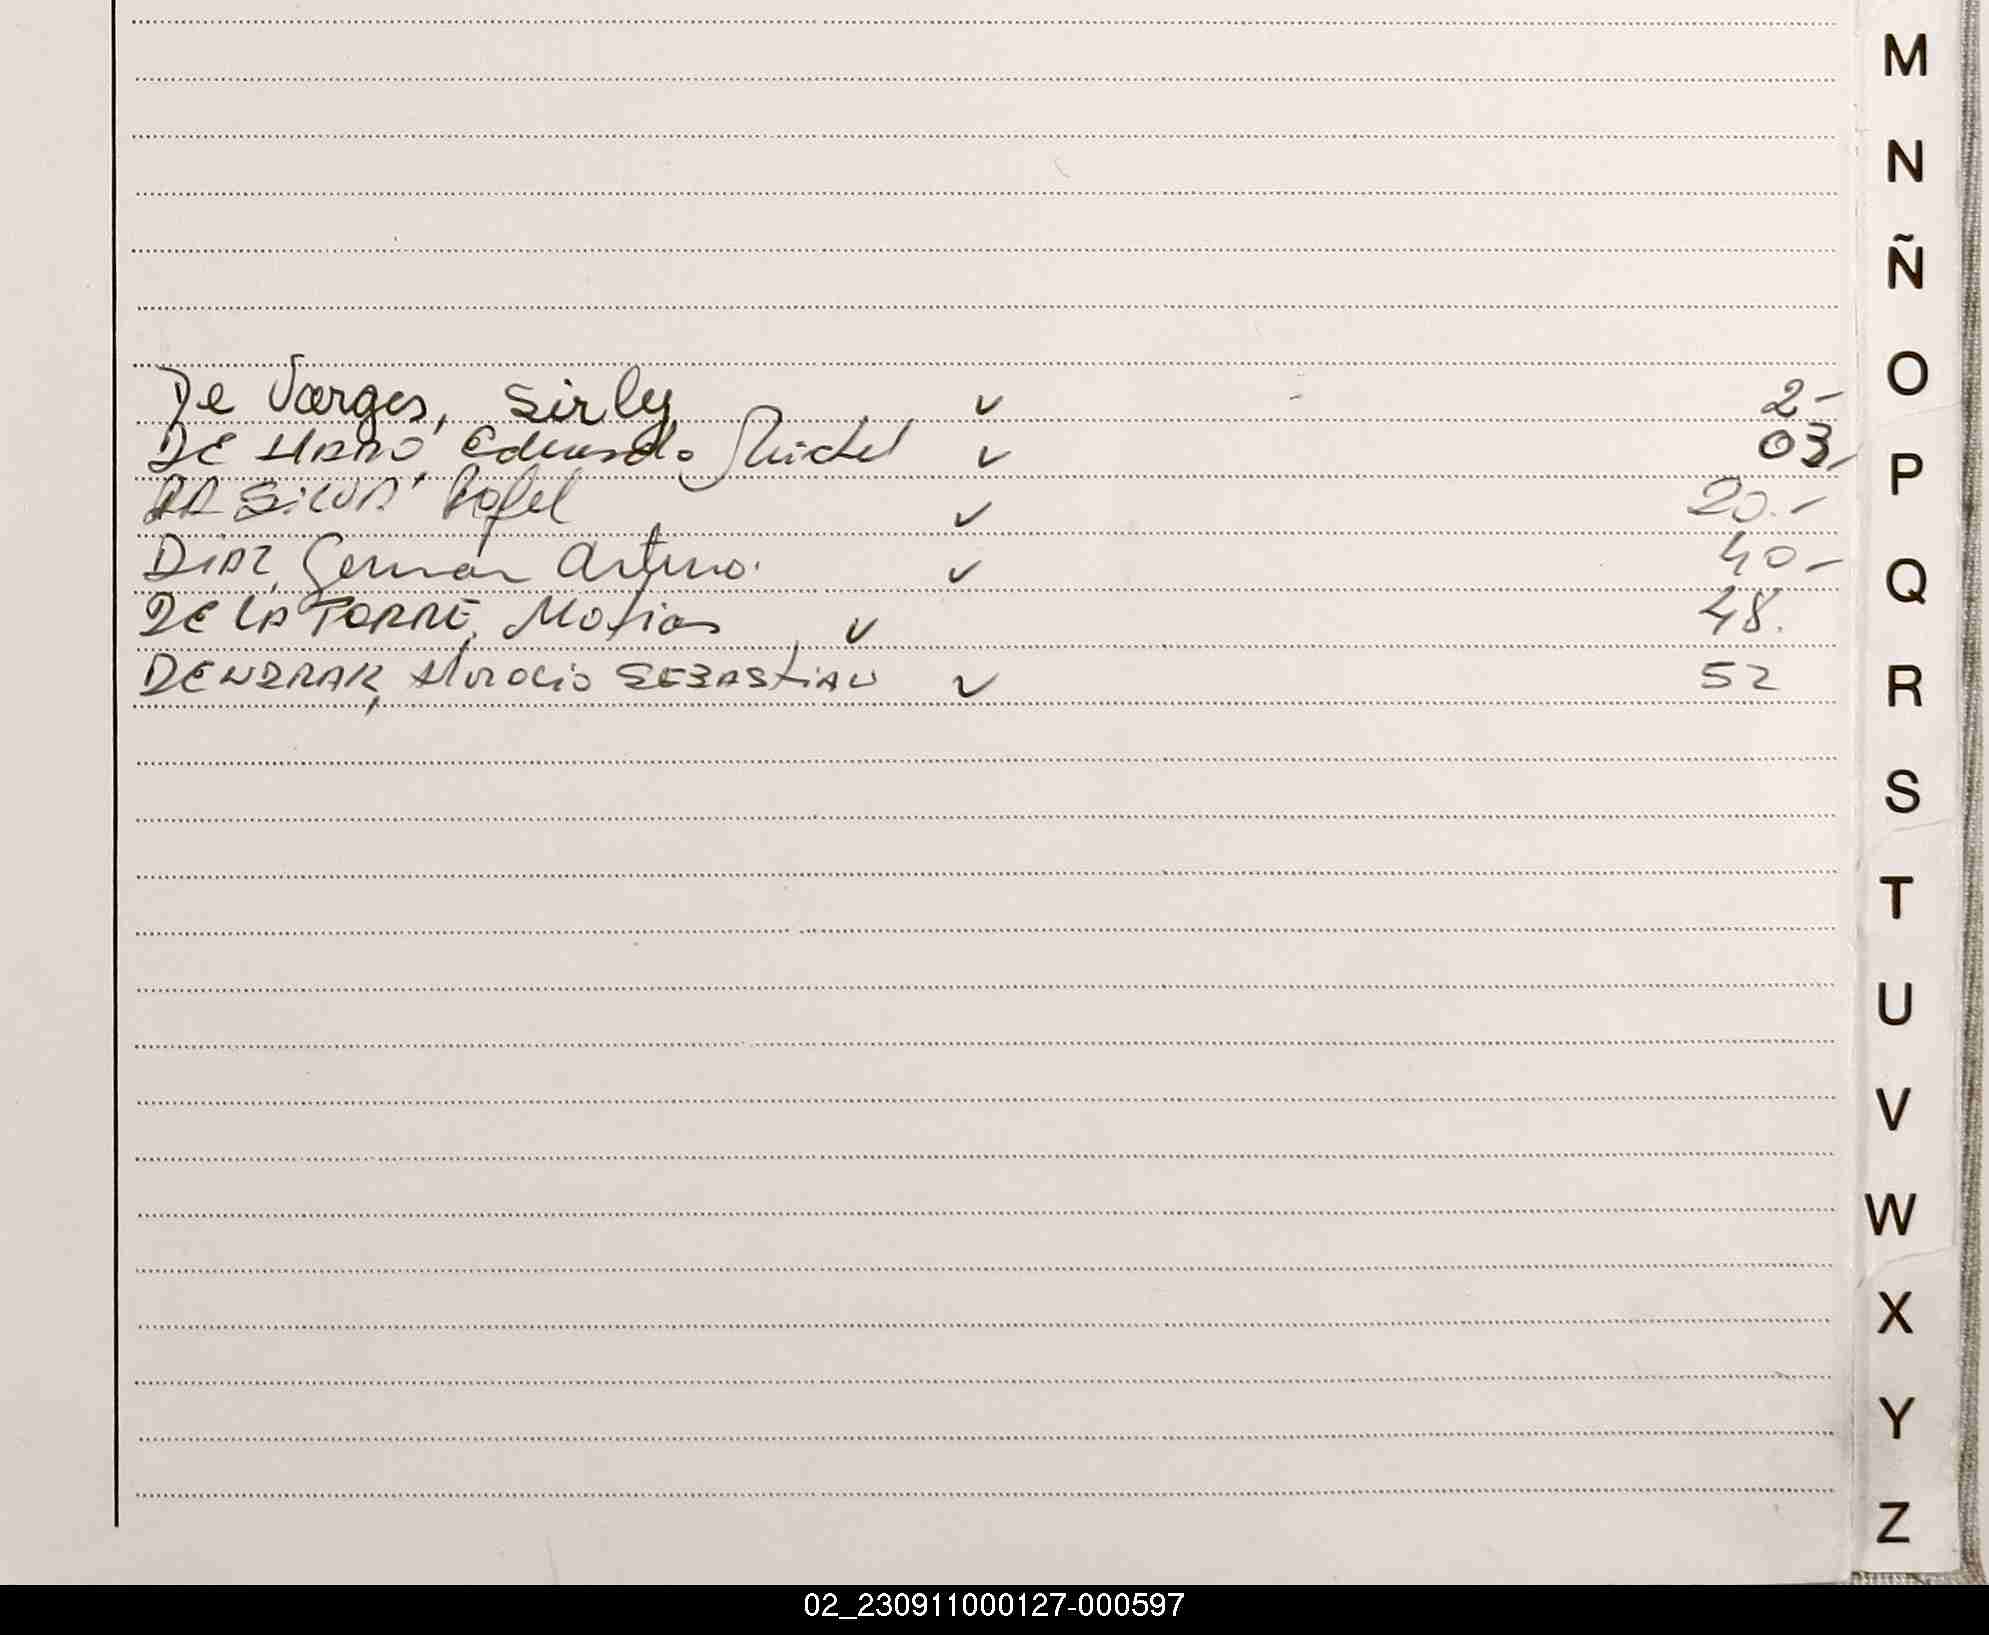 De Vargas, Sirley ✓ 2-
DE HARO, Eduardo Michel ✓ 03.-
DA SILVA, Rafel ✓ 20.-
DIAZ, German Arturo. ✓ 40-
DE LA TORRE, Matias ✓ 48.
DENDRAK, Horacio SEBASTIAN ✓ 52
M
N
Ñ
O
P
Q
R
S
T
U
V
W
X
Y
Z
02_230911000127-000597